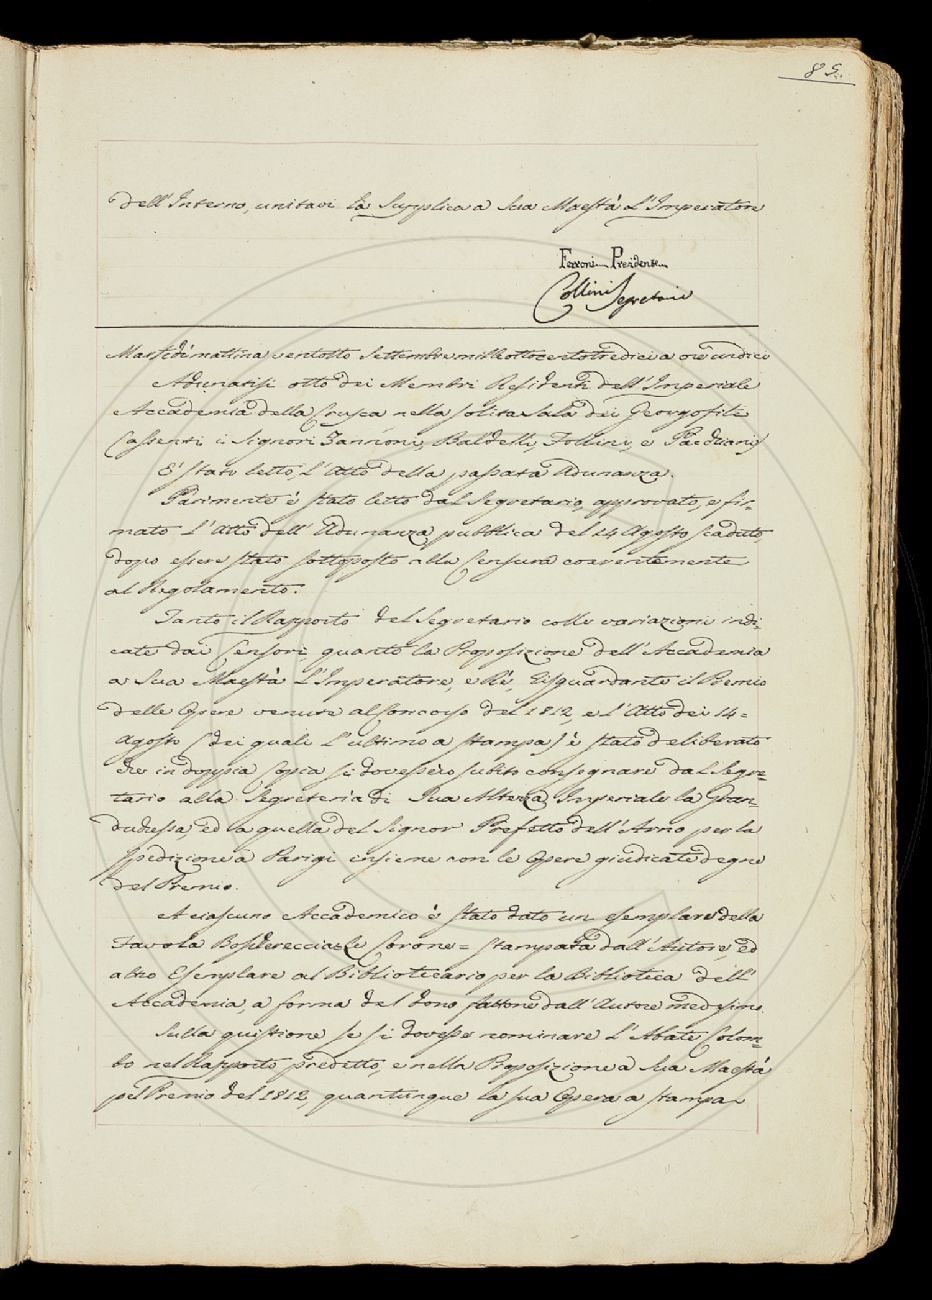 85.
dell'Interno, unitavi la Supplica a Sua Maestà L'Imperatore
Ferroni Presidente
Collini Segretario
Martedì mattina ventotto Settembre mille ottocento tredici a ore undici
Adunatisi otto dei Membri Residenti dell'Imperiale
Accademia della Crusca nella solita Sala dei Georgofili
(assenti i Signori Zannoni, Baldelli, Follini, e
E' stato letto L'Atto della passata Adunanza.
Parimente è stato letto dal Segretario, approvato, e fir-
mato L'Atto dell'Adunanza pubblica del 14 Agosto scaduto,
dopo essere stato sottoposto alla Censura coerentemente
al Regolamento.
Tanto il Rapporto del Segretario colle variazioni indi-
cate dai Censori, quanto la Proposizione dell'Accademia
a Sua Maestà L'Imperatore, e Rè, risguardante il Premio
delle Opere venute al Concorso del 1812, e l'Atto dei 14-
Agosto (dei quali L'ultimo a stampa) è stato deliberato
che in doppia Copia si dovessero subito consegnare dal Segre-
tario alla Segreteria di Sua Altezza Imperiale la Gran-
duchessa, ed a quella del Signor Prefetto dell'Arno per la
spedizione a Parigi insieme con le Opere giudicate degne
del Premio.
A ciascuno Accademico è stato dato un esemplare della
Favola Boschereccia = Le Corone = stampata dall'Autore, ed
altro Esemplare al Bibliotecario per la Biblioteca dell'
Accademia, a forma del dono fattone dall'Autore medesimo.
Sulla quistione se si dovesse nominare L'Abate Colom-
bo nel Rapporto predetto, e nella Proposizione a Sua Maestà
pel Premio del 1812, quantunque la sua Opera a stampa